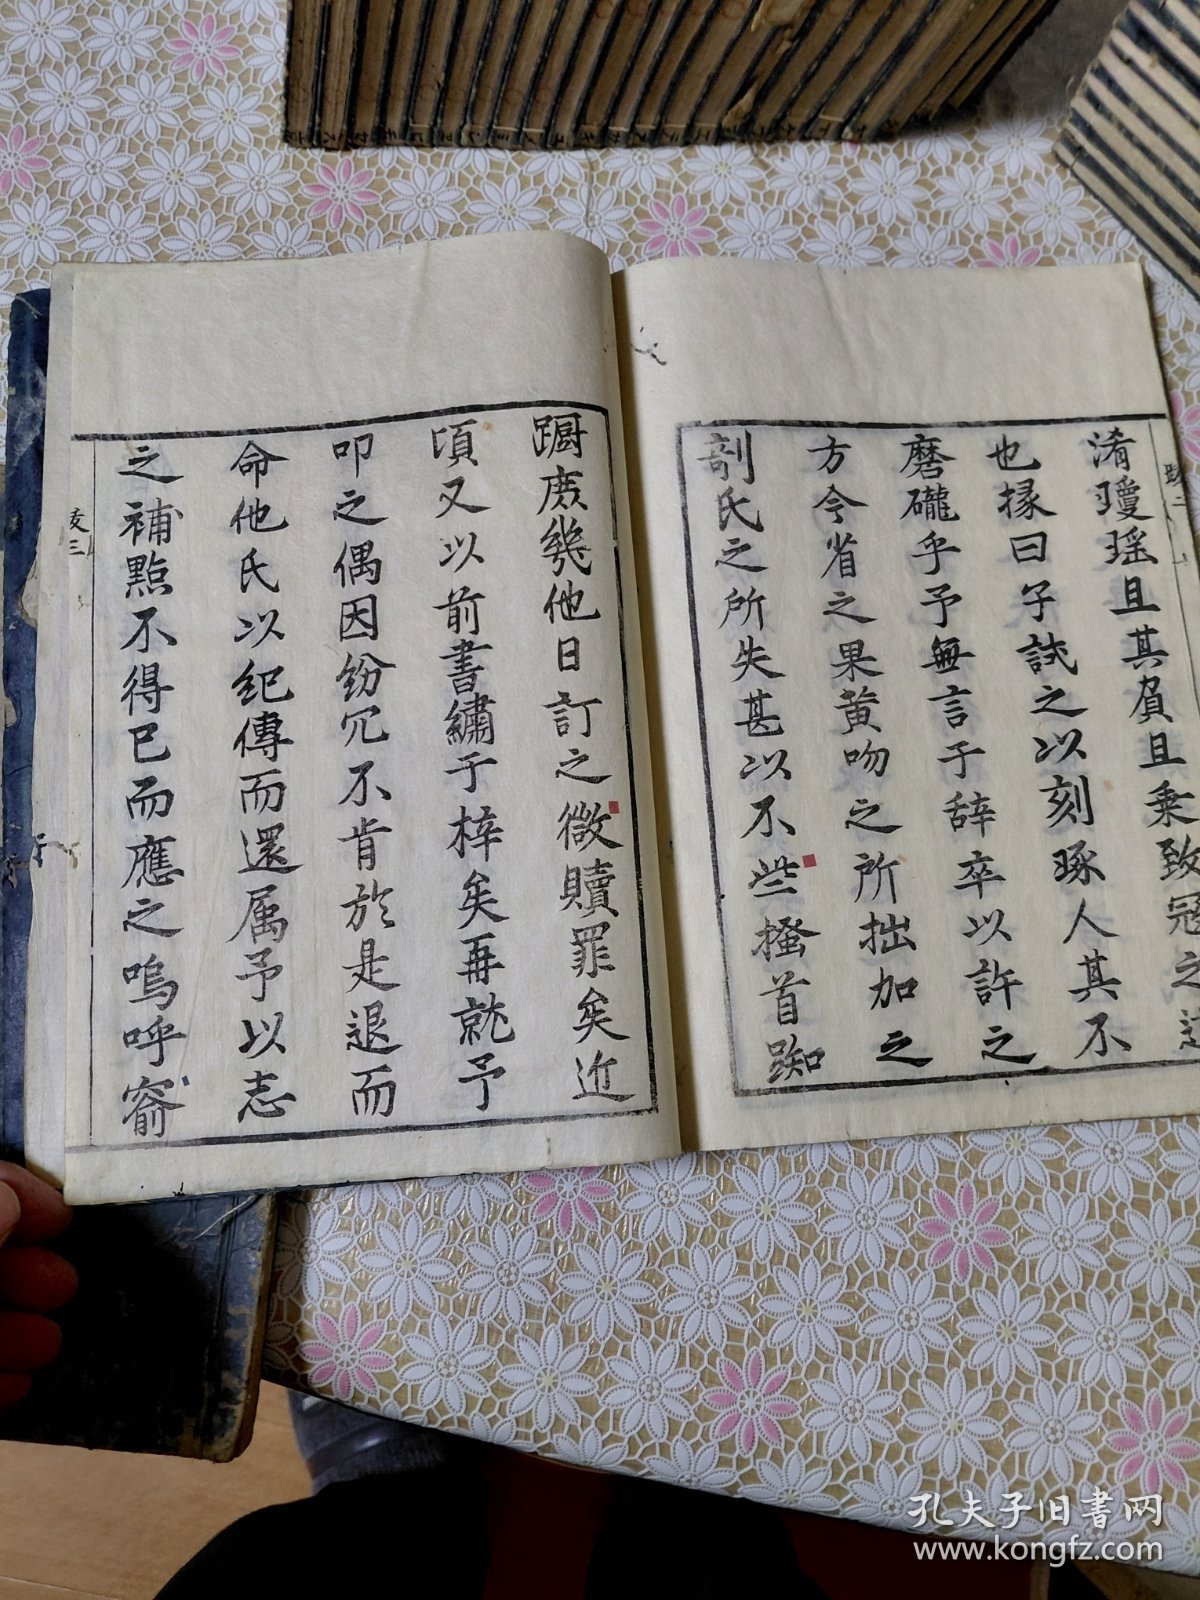 淆瓊瑶且其負且乗致冠之
也掾曰子試之以刻琢人其不
磨礲乎予無言于辞卒以許之
方今省之果黄吻之所拙加之
剞氏之所失甚以不些搔首踟
蹰庻幾他日訂之徴贖罪矣近
頃又以前書繡于梓矣再就予
叩之偶因紛冗不肯於是退而
命他氏以紀傳而還属予以志
之補點不得已而應之嗚呼
跋三
孔夫子旧书网
www.kongfz.com